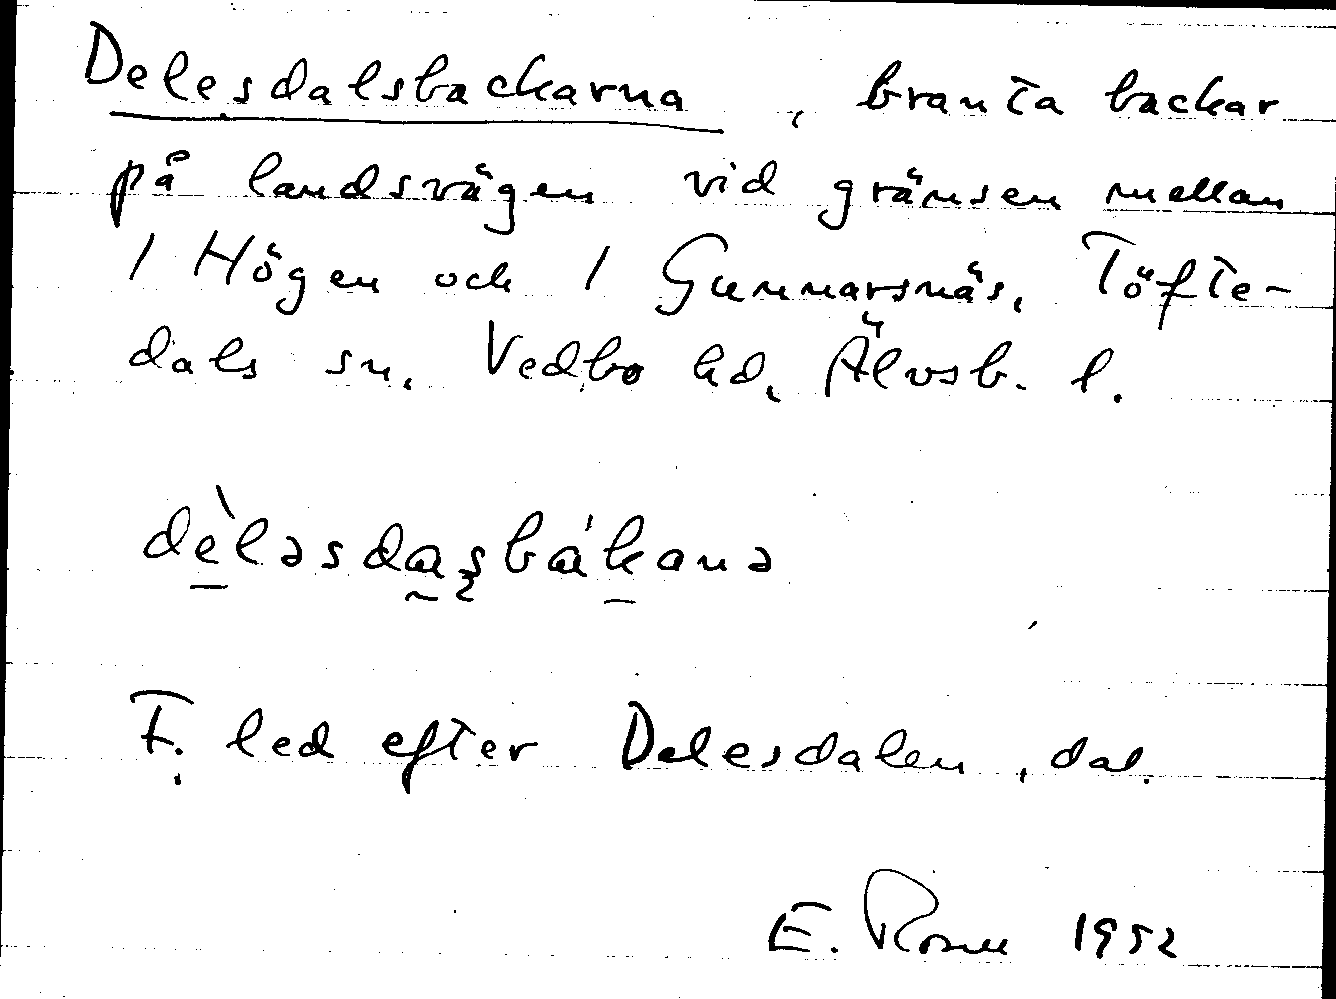 Delesdalsbackarna, branta backar
på landsvägen vid gränsen mellan
1 Högen och 1 Gunnarsnäs, Töfte-
dals sn, Vedbo hd, Älvsb. l.
dèləsdaʂbákanə
F. led efter Delesdalen, dal.
E. Rosell 1952